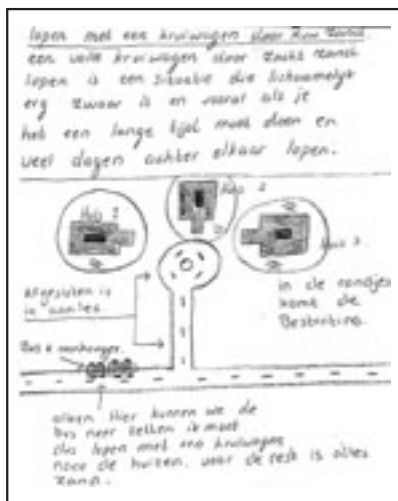 lopen met een kruiwagen door
een volle kruiwagen door zacht zand
lopen is een situatie die lichamelijk
erg zwaar is en vooral als je
het een lange tijd moet doen en
veel dagen achter elkaar lopen.
Huis 2
Huis 1
Huis 3
Afgesloten is
in aanleg
in de rondjes
komt de
Bestrating.
Bus + aanhanger.
alleen Hier kunnen we de
bus neer zetten ik moet
dus lopen met een kruiwagen
naar de huizen, voor de rest is alles
zand.